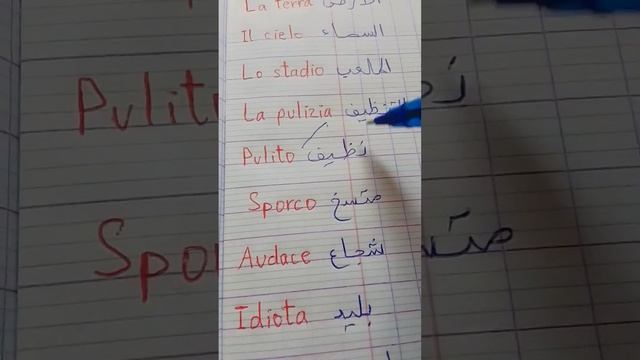 La terra الأرض
Il cielo السماء
Lo stadio الملعب
La pulizia التنظيف
Pulito نظيف
Sporco متسخ
Audace شجاع
Idiota بليد